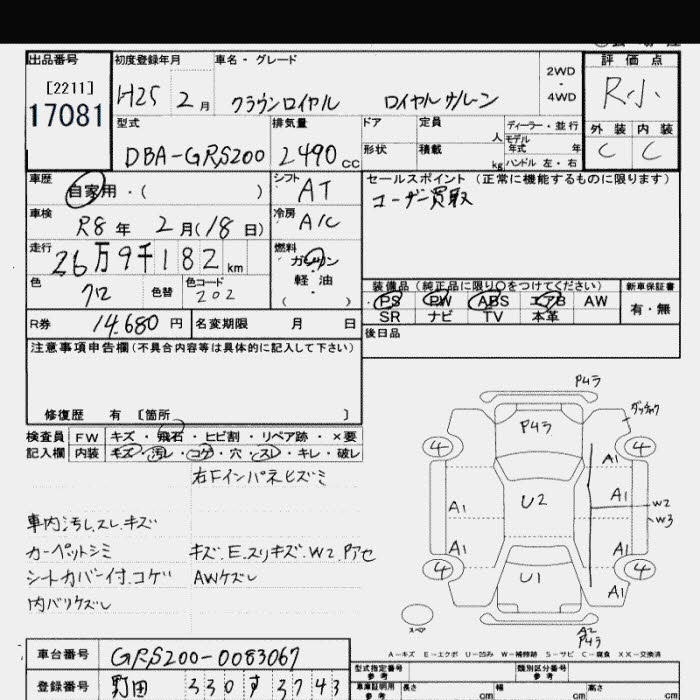 出品番号 初度登録年月 車名・グレード 評価点
[2211] 2WD ・ 4WD
17081 H25 2月 クラウンロイヤル ロイヤルサルーン R小
型式 排気量 ドア 定員 人 ディーラー・並行 外装 内装
モデル年式 年
DBA-GRS200 2490cc 形状 積載 kg ハンドル 左・右 C C
車歴 自家用・( ) シフト AT セールスポイント (正常に機能するものに限ります)
ユーザー買取
車検 R8年 2月(18日) 冷房 A/C
走行 26万9千182km 燃料 ガソリン・軽油 ( )
色 クロ 色替 色コード 202
装備品 (純正品に限り○をつけてください) 新車保証書
PS PW ABS エアB AW 有・無
SR ナビ TV 本革
R券 14,680円 名変期限 月 日 後日品
注意事項申告欄 (不具合内容等は具体的に記入して下さい)
修復歴 有 〔箇所 〕
検査員 FW キズ・飛石・ヒビ割・リペア跡・×要
記入欄 内装 キズ・汚レ・コゲ・穴・スレ・キレ・破レ
右Fインパネヒズミ
車内汚レ.スレ.キズ
カーペットシミ キズ.E.スリキズ.W2.Pアセ
シートカバー付.コゲ AWケズレ
内バリケズレ
P4ラ
P4ラ
4 4
A1
A1 U2 A1 W2
W3
A1 A1
4 U1 4
A1
スペア A2
P4ラ
A-キズ E-エクボ U-凹み W-補修跡 S-サビ C-腐食 XX-交換済
車台番号 GRS200-0083067
型式指定番号 参考 類別区分番号 参考
登録番号 野田 330す3743
車庫証明用 参考 長さ cm 幅 cm 高さ cm